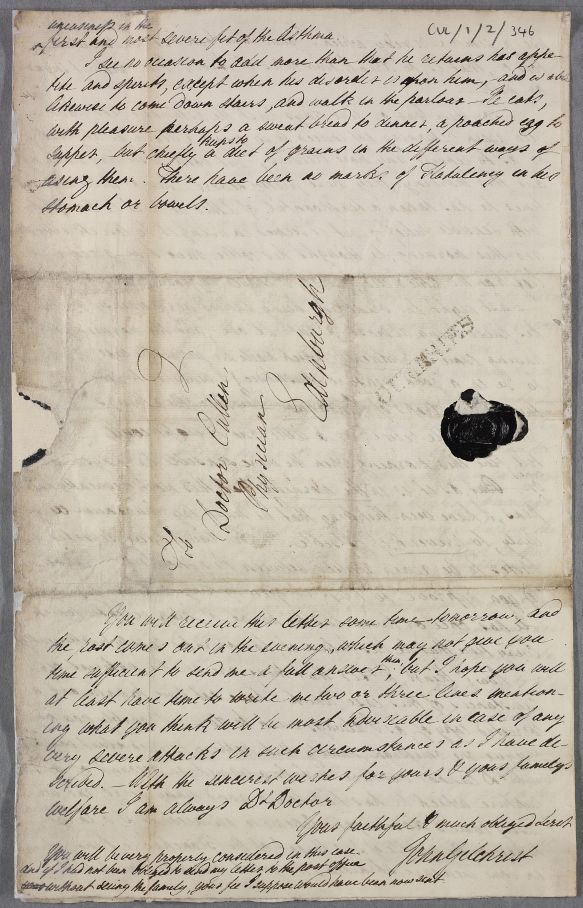 CUL/1/2/346
uneasiness in the
first and most severe fit of the Asthma.
I see no occasion to add more than that he retains his appe-
tite and spirits, except when his disorder is upon him, and is able
likewise to come down stairs, and walk in the parlour – He eats,
with pleasure perhaps a sweet bread to dinner, a poached egg to
supper, but chiefly keeps to a diet of grains in the different ways of
using them. There have been no marks of Flatulency in his
stomach or bowels.
To
Doctor Cullen
Physician
Edinburgh
DUMFRIES
You will receive this letter some time tomorrow, and
the post comes out in the evening, which may not give you
time sufficient to send me a full answer then, but I hope you will
at least have time to write me two or three lines mention-
ing what you think will be most adviseable in case of any
very severe attacks in such circumstances as I have de-
scribed. – With the sincerest wishes for yours & your family's
welfare I am always Dr Doctor
Your faithful & much obliged Servt
John Gilchrist
You will be very properly considered in this case
and if I had not been obliged to send my letter to the post office
without seeing the family, your fee I suppose would have been now sent.